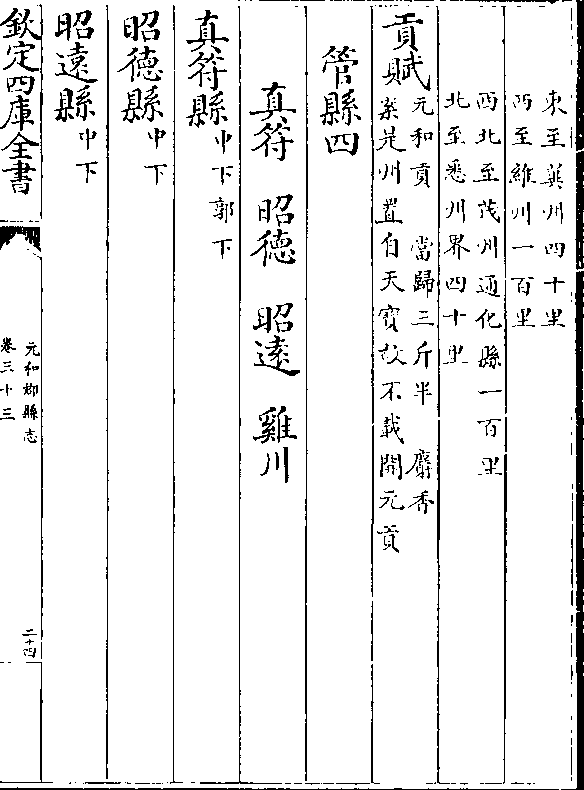 東至冀州四十里
西至維州一百里
西北至茂州通化縣一百里
北至悉州界四十里
貢賦元和貢 當歸三斤半 麝香
案是州置自天寶故不載開元貢
管縣四
真符 昭德 昭遠 雞川
真符縣中下郭下
昭德縣中下
昭遠縣中下
欽定四庫全書
元和郡縣志
卷三十三
二十四